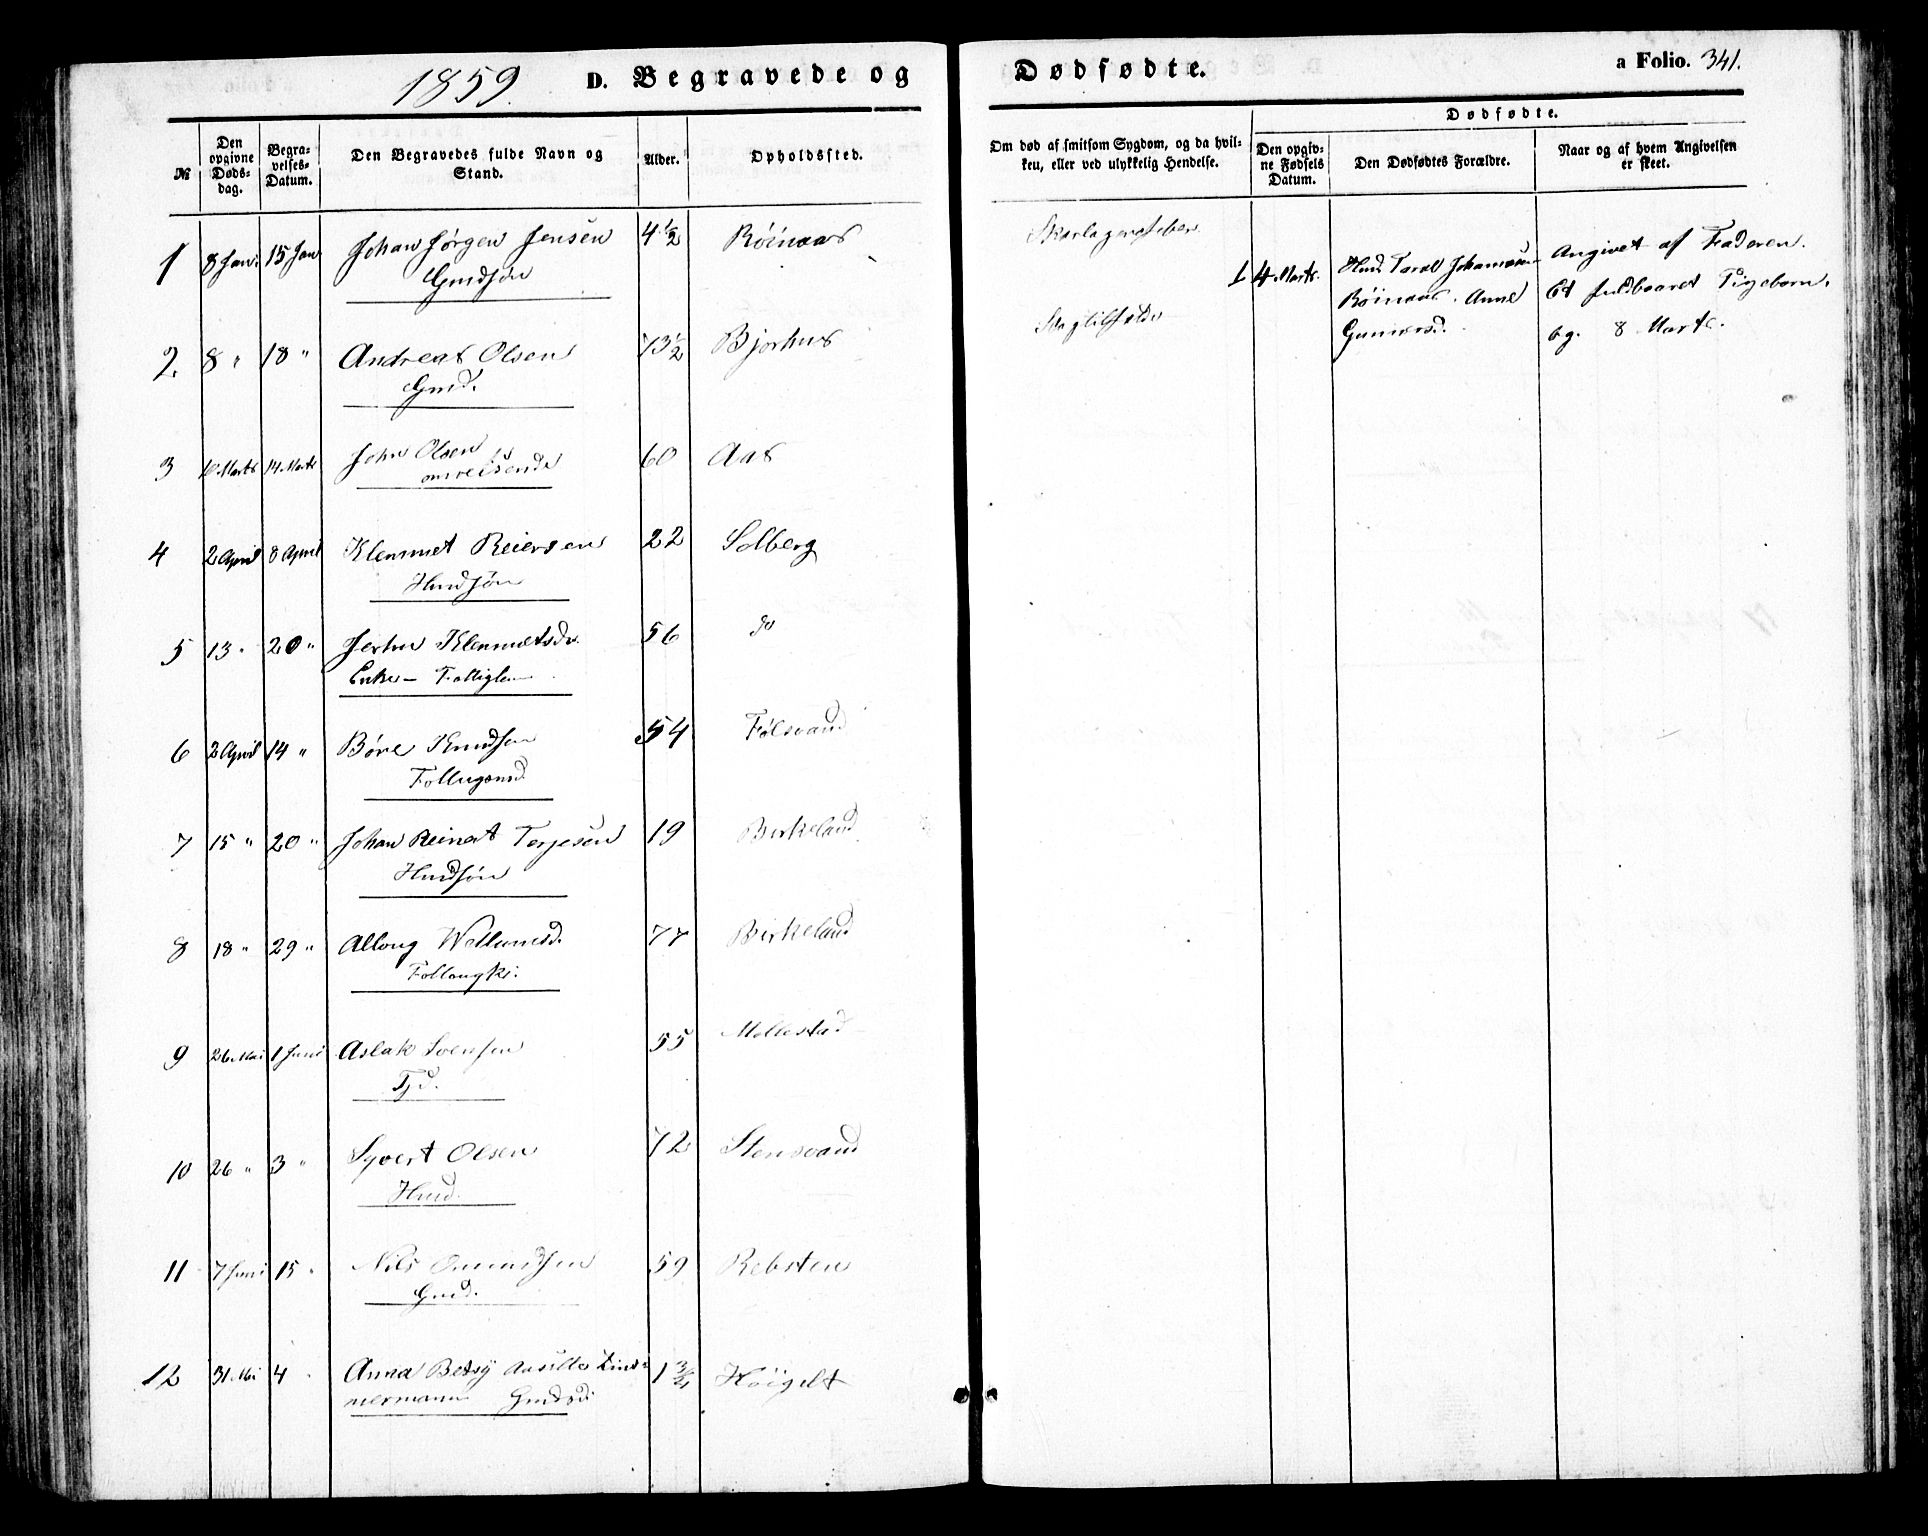 1859. D. Begravede og Dødfødte. a Folio. 341.
№ Den opgivne Dødsdag. Begravelses-Datum. Den Begravedes fulde Navn og Stand. Alder. Opholdssted. Om død af smitsom Sygdom, og da hvilken, eller ved ulykkelig Hendelse. Dødfødte.
Den opgivne Fødsels Datum. Den Dødfødtes Forældre. Naar og af hvem Angivelsen er skeet.
1 8 Jan. 15 Jan Johan Jørgen Jensen 4 1/2 Röinaas Skarlagensfeber
Gmdsøn
1 4 Marts. Hmd. Taral Johannesen Angivet af Faderen.
Röinaas. Anne Et fuldbaaret Pigebarn.
Gunnarsd. bg. 8 Marts.
2. 8 " 18 " Andreas Olsen 73 1/2 Bjorhus
Gmd.
3 10 Marts 14 Marts John Olsen 60 Aas
omreisende
4 2 April 8 April Klemmet Reiersen 22 Solberg
Hmdsøn
5 13 " 20 " Klemmetsdr. 56 do
Enke-
6 2 April 14 " Børe Knudsen 54 Følsvand
7 15 " 20 " Johan Reinert Terjesen 19 Birkeland
Hmdsøn
8 18 " 29 " Allong 77 Birkeland
9 26 Mai 1 Juni Aslak Svensen 55 Mollestad
10 26 " 3 " Syvert Olsen 72 Stensvand
Hmd.
11 7 Juni 15 " Nils Omundsen 59 Rebsten
Gmd.
12 31 Mai 4 " Anna Betsy Zim-
mermann Gmdsd. 1 3/4 Höigilt